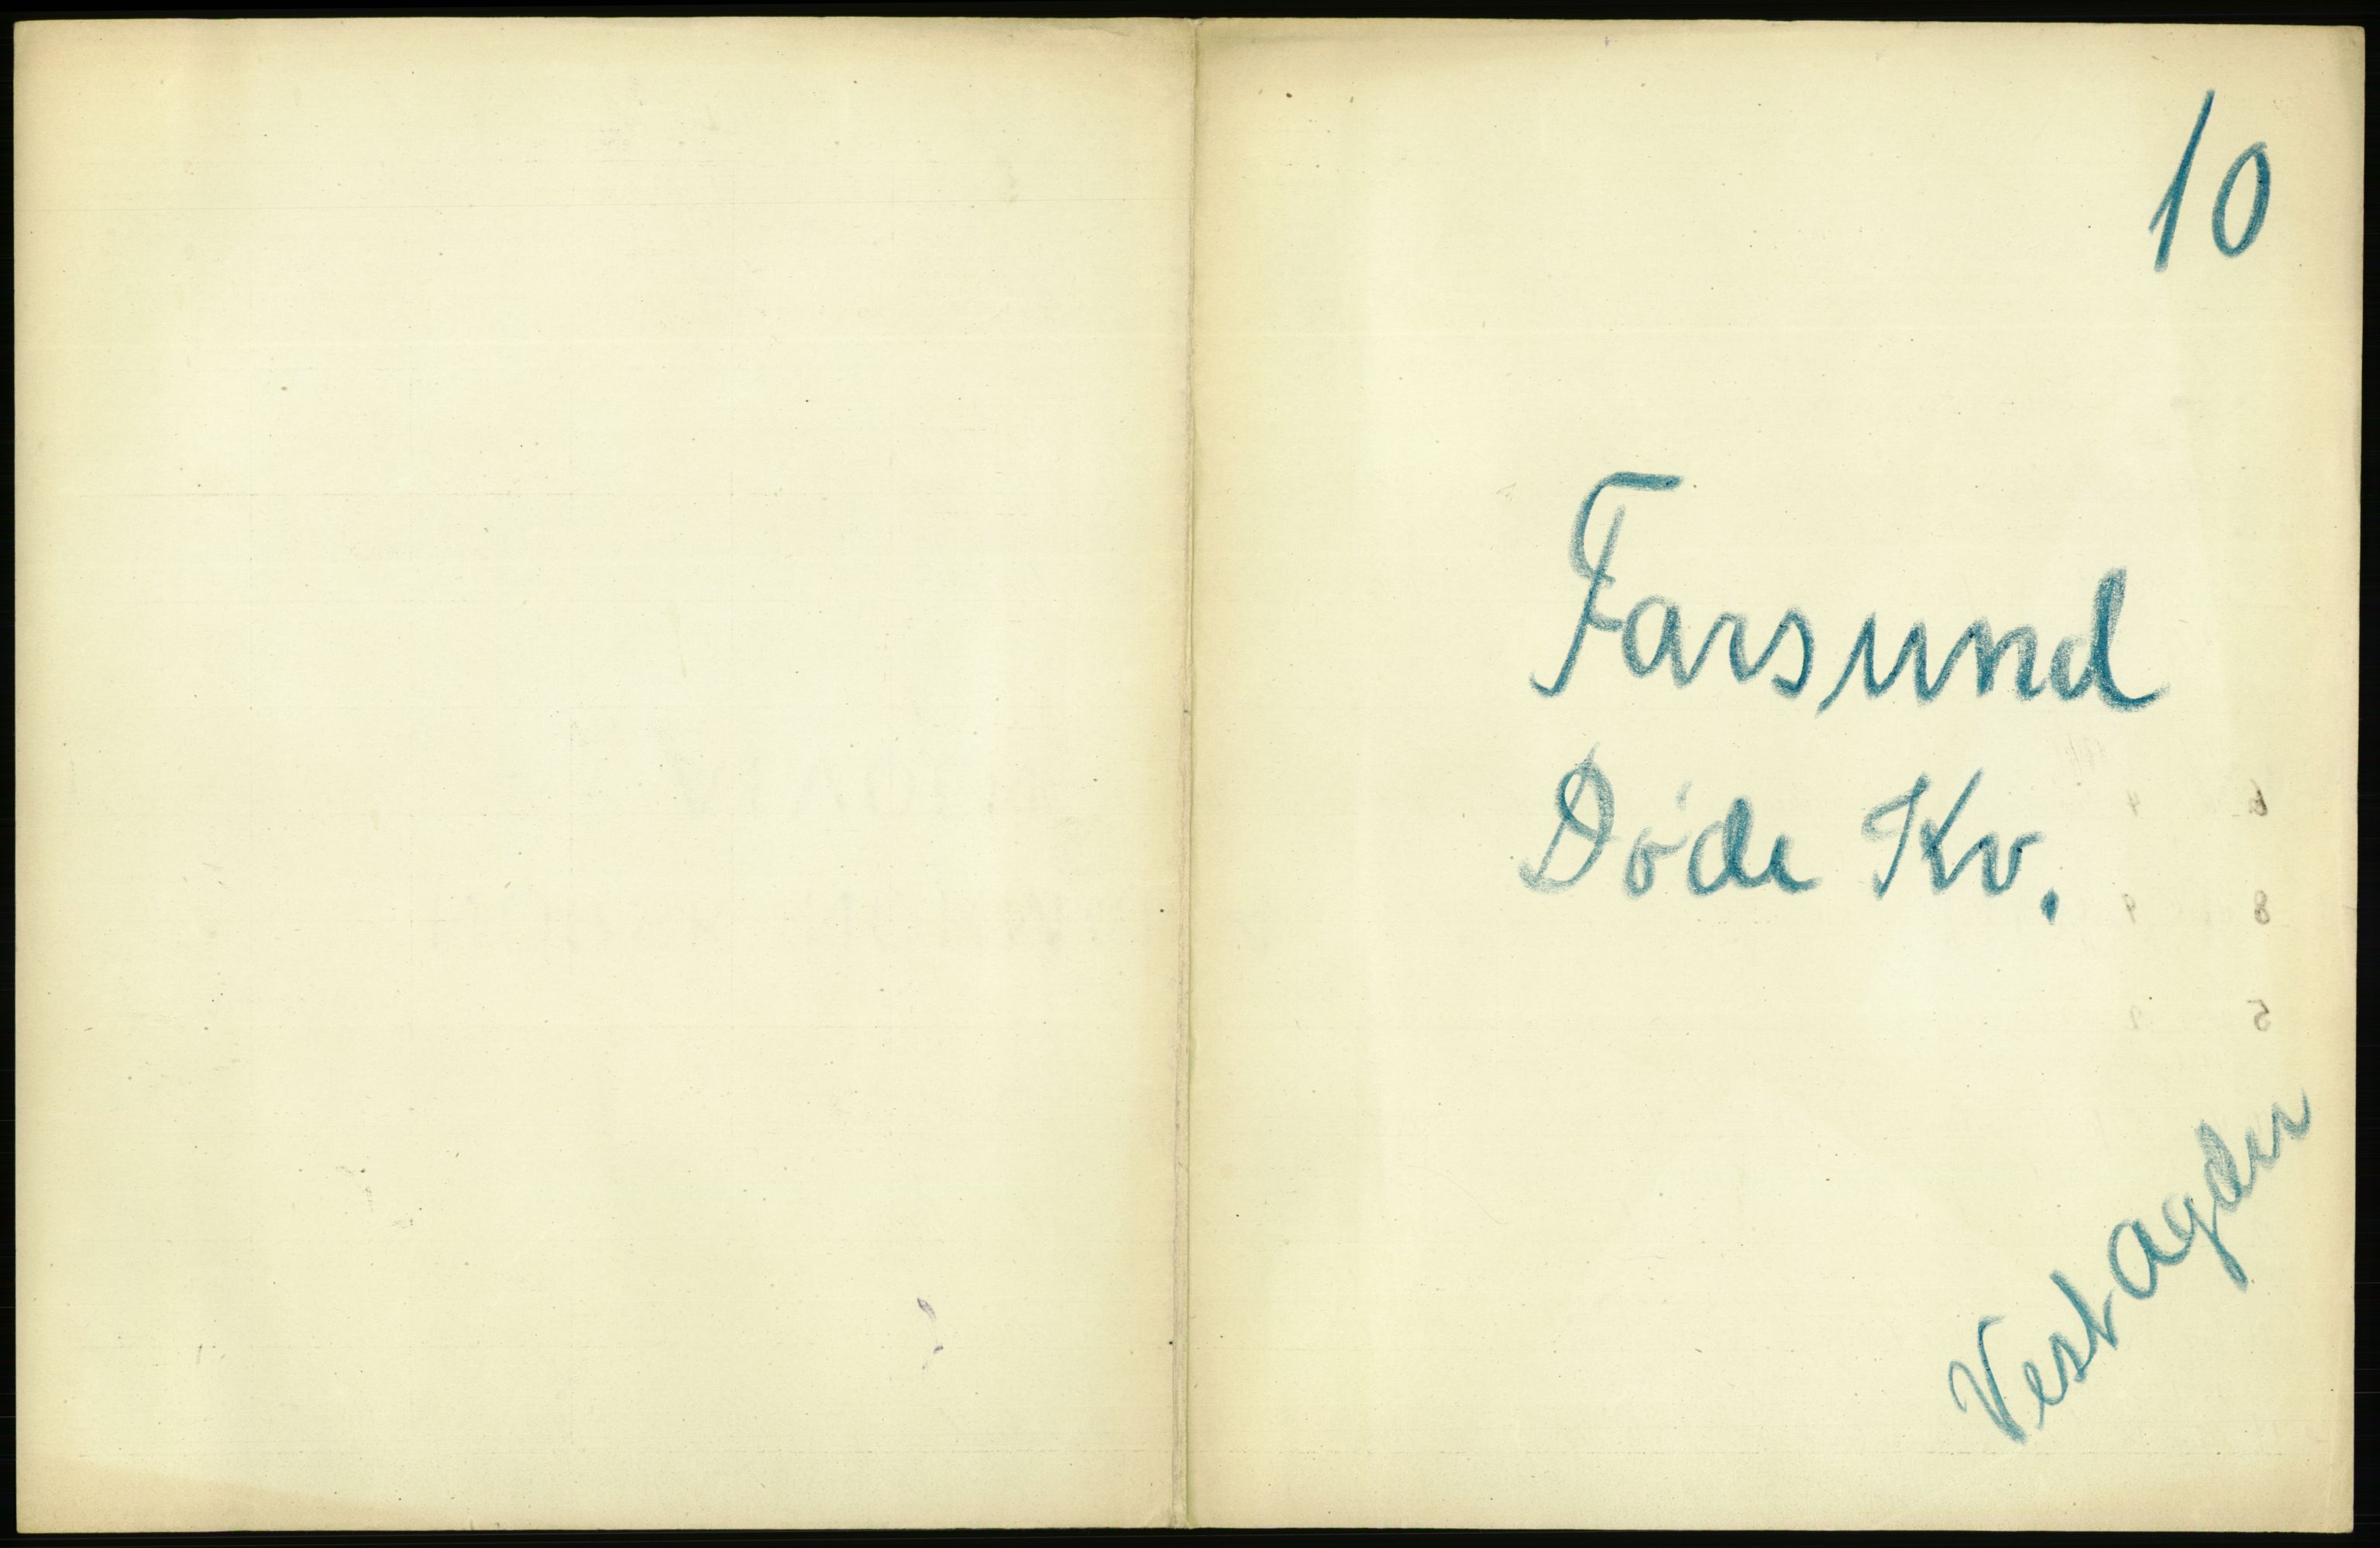 10
Farsund
Døde Kv.
Vest agder